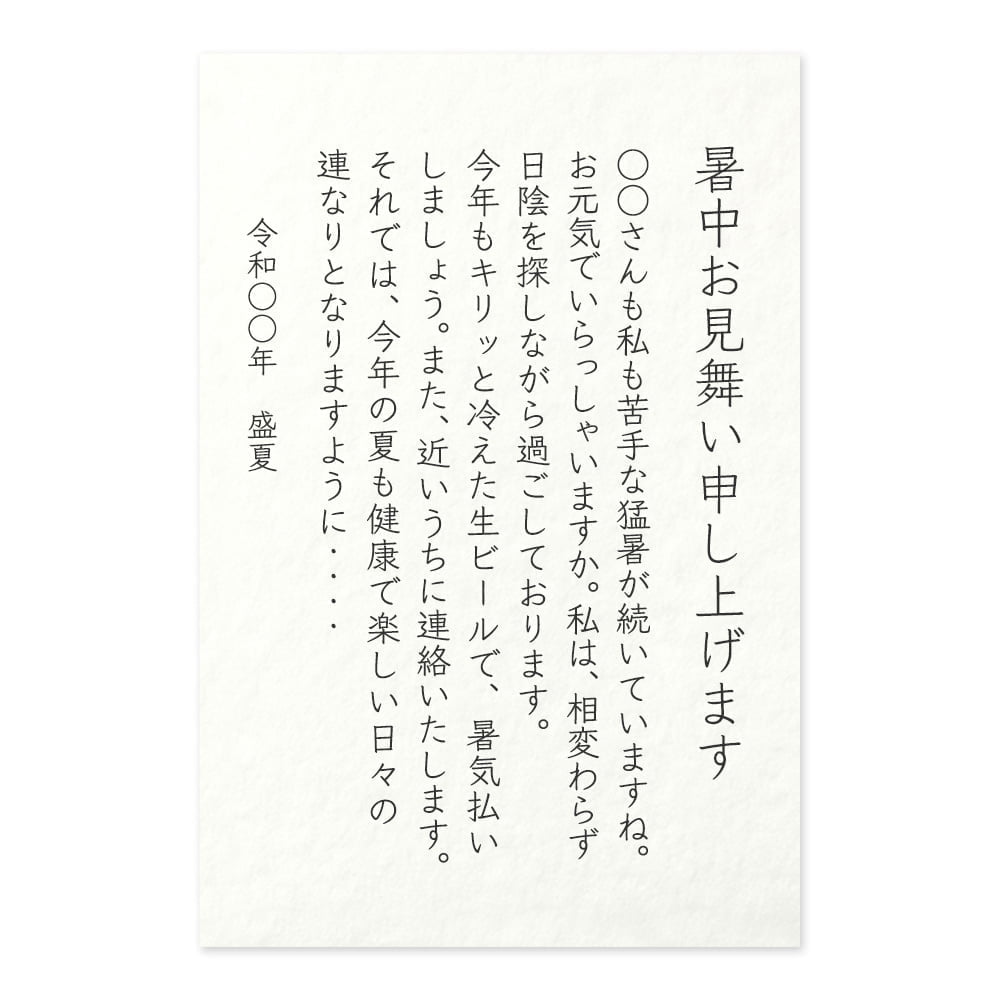 暑中お見舞い申し上げます
〇〇さんも私も苦手な猛暑が続いていますね。
お元気でいらっしゃいますか。私は、相変わらず
日陰を探しながら過ごしております。
今年もキリッと冷えた生ビールで、暑気払い
しましょう。また、近いうちに連絡いたします。
それでは、今年の夏も健康で楽しい日々の
連なりとなりますように・・・・
令和〇〇年　盛夏